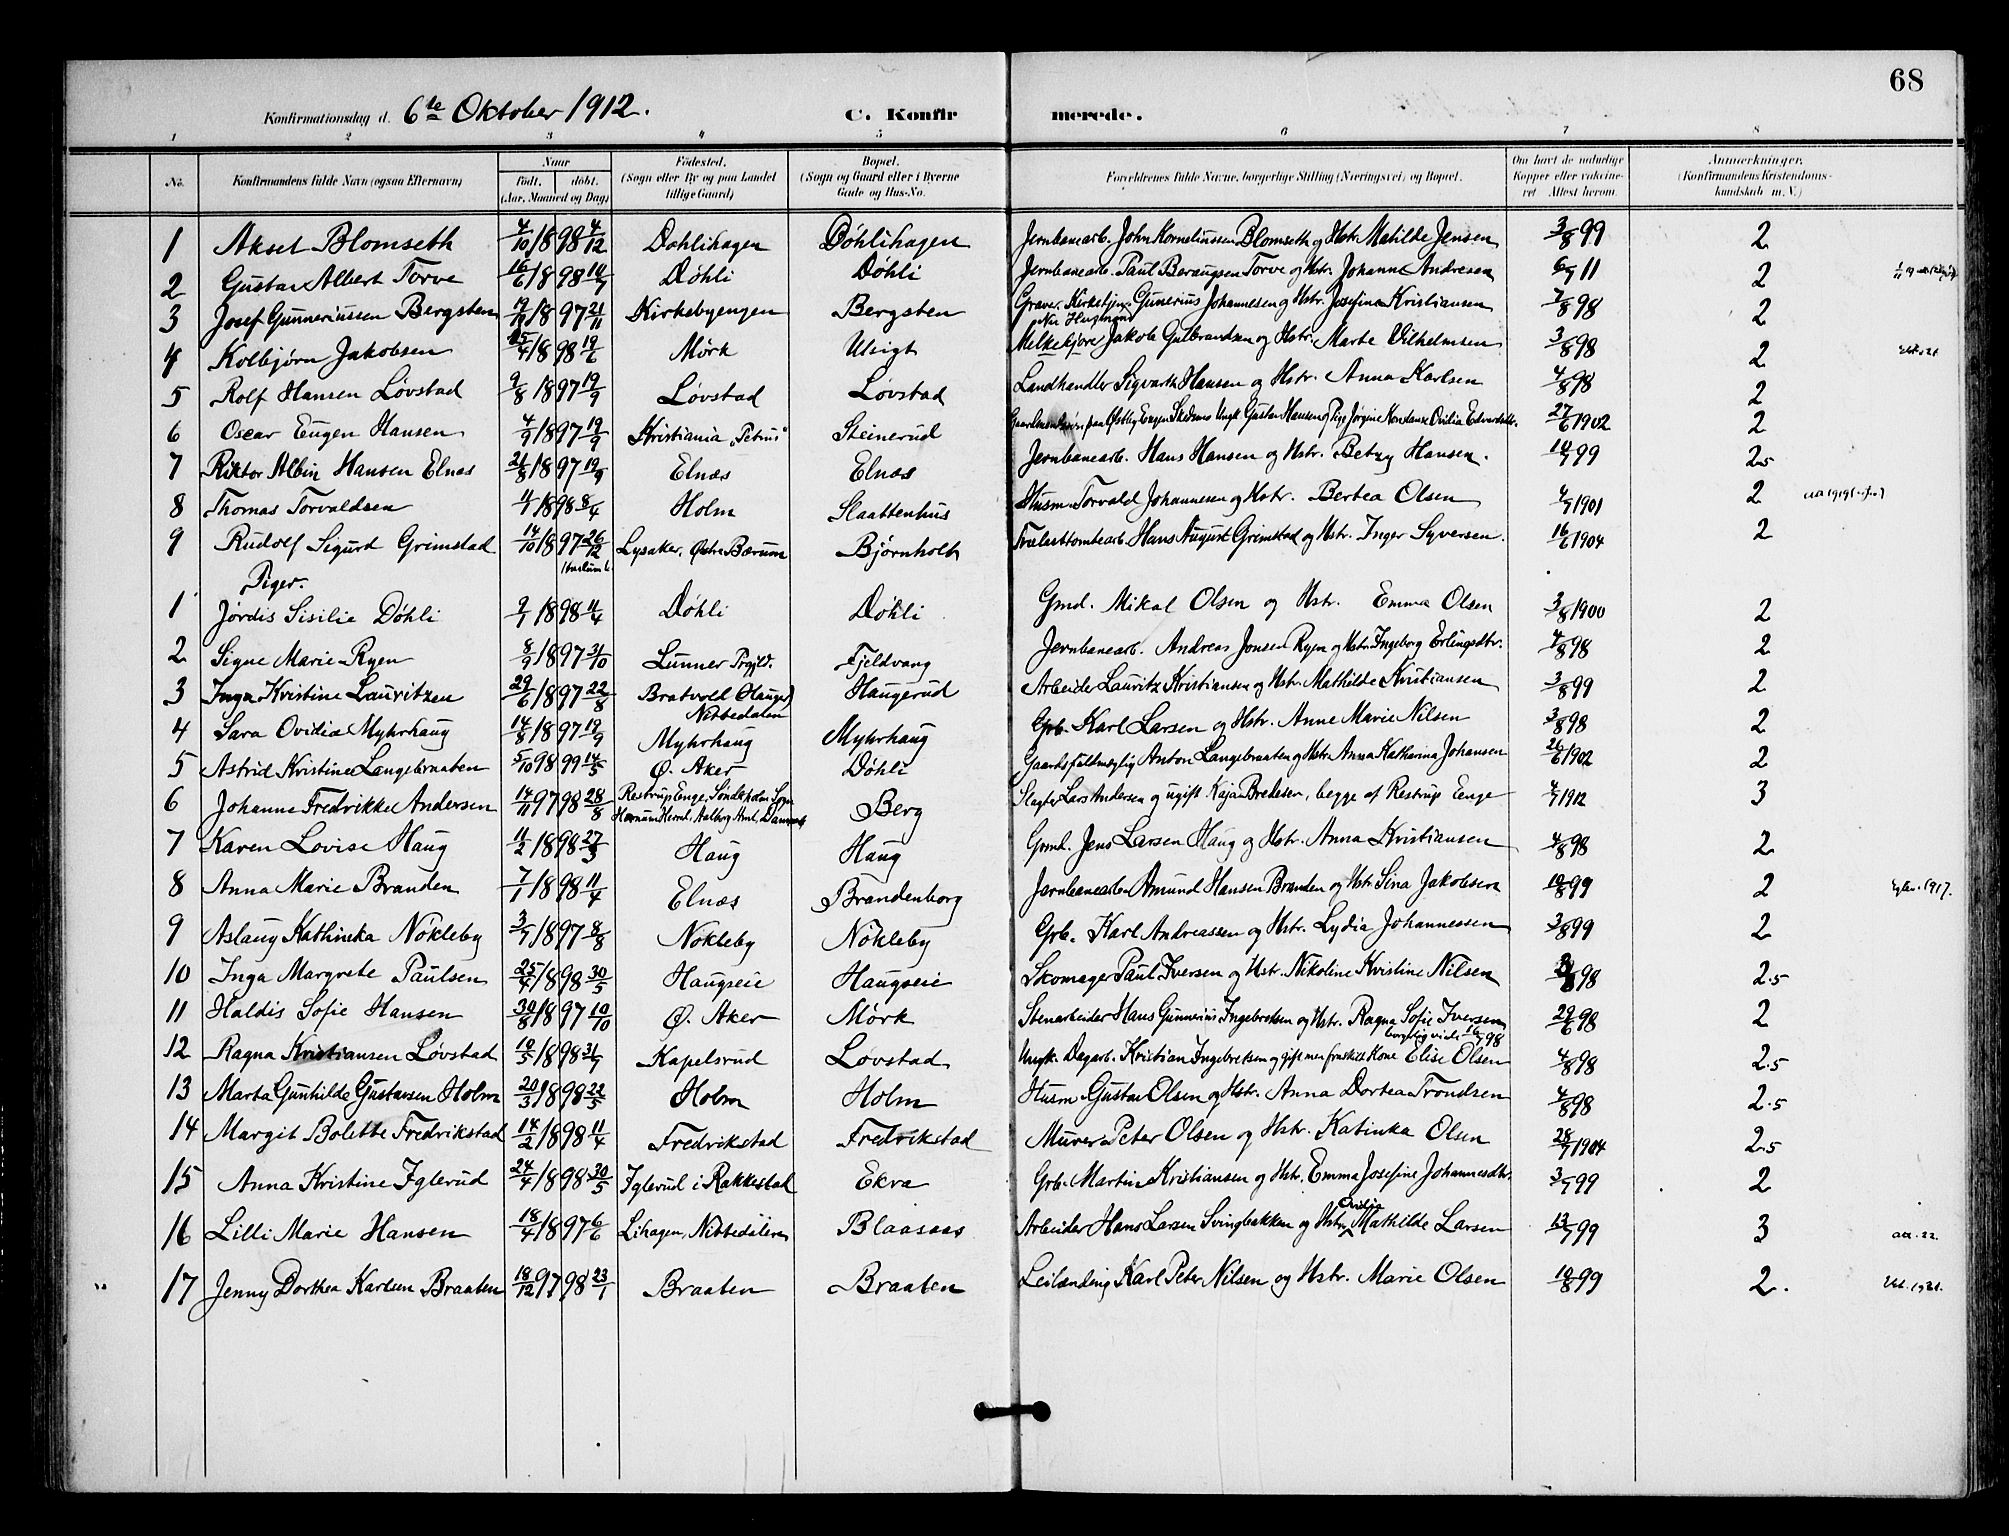 68
Konfirmationsdag d. 6te Oktober 1912. C. Konfirmerede.
1 2 3 4 5 6 7 8
No. Konfirmandens fulde Navn (ogsaa Efternavn) Naar født. døbt. (Aar, Maaned og Dag) Fødested. (Sogn eller By og paa Landet tillige Gaard) Bopæl. (Sogn og Gaard eller i Byerne Gade og Hus-No. Forældrenes fulde Navne, borgerlige Stilling (Næringsvei) og Bopæl. Om havt de naturlige Kopper eller vaccineret Attest herom. Anmærkninger. (Konfirmandens Kristendomskundskab m. V.)
1 Aksel Blomseth 4/10 1898 4/12 Døhlihagen Døhlihagen Jernbanearb. John Korneliussen Blomseth og Hstr. Matilde Jensen 3/8 99 2
2 Gustav Albert Torve 16/6 1898 Døhli Døhli Jernbanearb. Paul Beraugsen Torve og Hstr. Johanne Andresen 6/9 11 2
3 Josef Gunneriussen Bergsten 1897 21/11 Kirkebyengen Bergsten Graver, Kirketjen. Gunerius Johannesen og Hstr. Josefine Kristiansen 7/8 98 2
4 Kolbjørn Jakobsen 25/4 1898 19/6 Mørk Ulsigt Melkekjører Jakob Gulbrandsen og Hstr. Marte Vilhelmsen 3/8 98 2
5 Rolf Hansen Løvstad 9/8 1897 19/9 Løvstad Løvstad Landhandler Sigvarth Hansen og Hstr. Anna Karlsen 4/8 98 2
6 Oscar Eugen Hansen 4/9 1897 19/9 Kristiania "Petrus" Steinerud Ungk. Gustav Hansen og Pige Jørgine Konstanse Ovilia 27/6 1902 2
7 Viktor Albin Hansen Elnæs 21/8 1897 19/9 Elnæs Elnæs Jernbanearb. Hans Hansen og Hstr. Betzy Hansen. 99 2.5
8 Thomas Torvaldsen 1898 8/4 Holm Slaattenhus Husm. Torvald Johannesen og Hstr. Bertea Olsen 4/9 1901 2
9 Rudolf Sigurd Grimstad 14/10 1897 26/12 Lysaker, Østre Bærum Bjørnholt Hans August Grimstad og Hstr. Inger Syversen. 16/6 1904 2
Piger.
1 Jørdis Sisilie Døhli 9/1 1898 11/4 Døhli Døhli Gmd. Mikal Olsen og Hstr. Emma Olsen 3/8 1900 2
2 Signe Marie Ryen 8/9 1897 31/10 Lunner Prgjld. Fjeldvang Jernbanearb. Andreas Jonsen Ryen og Hstr. Ingeborg Erlingsdtr. 4/8 98 2
3 Inga Kristine Lauritzen 29/6 1897 22/8 Bratvold Hauger, Nittedalen Haugerud Arbeider Lauritz Kristiansen og Hstr. Mathilde Kristiansen 3/8 99 2
4 Sara Ovidia Myhrhaug 14/8 1897 19/9 Myhrhaug Myhrhaug Grb. Karl Larsen og Hstr. Anne Marie Nilsen 3/8 98 2
5 Astrid Kristine Langebraaten 5/10 98 99 14/5 Ø. Aker Døhli Gaardsfuldmægtig Anton Langebraaten og Hstr. Anna Katharina Johansen 26/6 1902 2
6 Johanne Fredrikke Andersen 14/11 97 98 28/8 Restrup Enge, Sønderholm Sogn, Hornum Herred, Aalborg Amt, Danmark Berg Slagter Lars Andersen og ugift Kaja Bredesen, begge af Restrup Enge 1912 3
7 Karen Lovise Haug 11/2 1898 27/3 Haug Haug Grmd. Jens Larsen Haug og Hstr. Anna Kristiansen 4/8 98 2
8 Anna Marie Branden 7/1 1898 11/4 Elnæs Brandenborg Jernbanearb. Amund Hansen Branden og Hstr. Sina Jakobsen 10/8 99 2 1917.
9 Aslaug Kathinka Nökleby 3/7 1897 8/8 Nökleby Nökleby Grb. Karl Andreassen og Hstr. Lydia Johannessen 3/8 99 2
10 Inga Margrete Paulsen 25/4 1898 30/5 Haugseie Haugseie Skomager Paul Iversen og Hstr. Nikoline Kristine Nilsen 98 2.5
11 Haldis Sofie Hansen 30/8 1897 10/10 Ø. Aker Mørk Stenarbeider Hans Gunnerius Ingebretsen og Hstr. Ragna Sofie Iversen 29/6 98 2
12 Ragna Kristiansen Løvstad 10/5 1898 31/7 Kapelsrud Løvstad Ungk. Dagarb. Kristian Ingebretsen og gift men fraskilt Kone Elise Olsen 4/8 98 2.5
13 Marta Gunhilde Gustavsen Holm 20/3 1898 22/5 Holm Holm Husm. Gustav Olsen og Hstr. Anna Dortea Trondsen 4/8 98 2.5
14 Margit Bolette Fredrikstad 14/2 1898 11/4 Fredrikstad Fredrikstad Murer Peter Olsen og Hstr. Katinka Olsen 28/7 1904 2.5
15 Anna Kristine Iglerud 24/4 1898 30/5 Iglerud i Rakkestad Ekra Grb. Martin Kristiansen og Hstr. Emma Josefine Johannesdtr. 3/7 99 2
16 Lilli Marie Hansen 18/4 1897 6/6 Lihagen, Nittedalen Blaasaas Arbeider Hans Larsen Svingbakken og Hstr. Ovidia Mathilde Larsen 13/7 99 3
17 Jenny Dorthea Karlsen Braaten 18/12 97 98 23/1 Braaten Braaten Leilending Karl Peter Nilsen og Hstr. Marie Olsen 10/8 99 2.